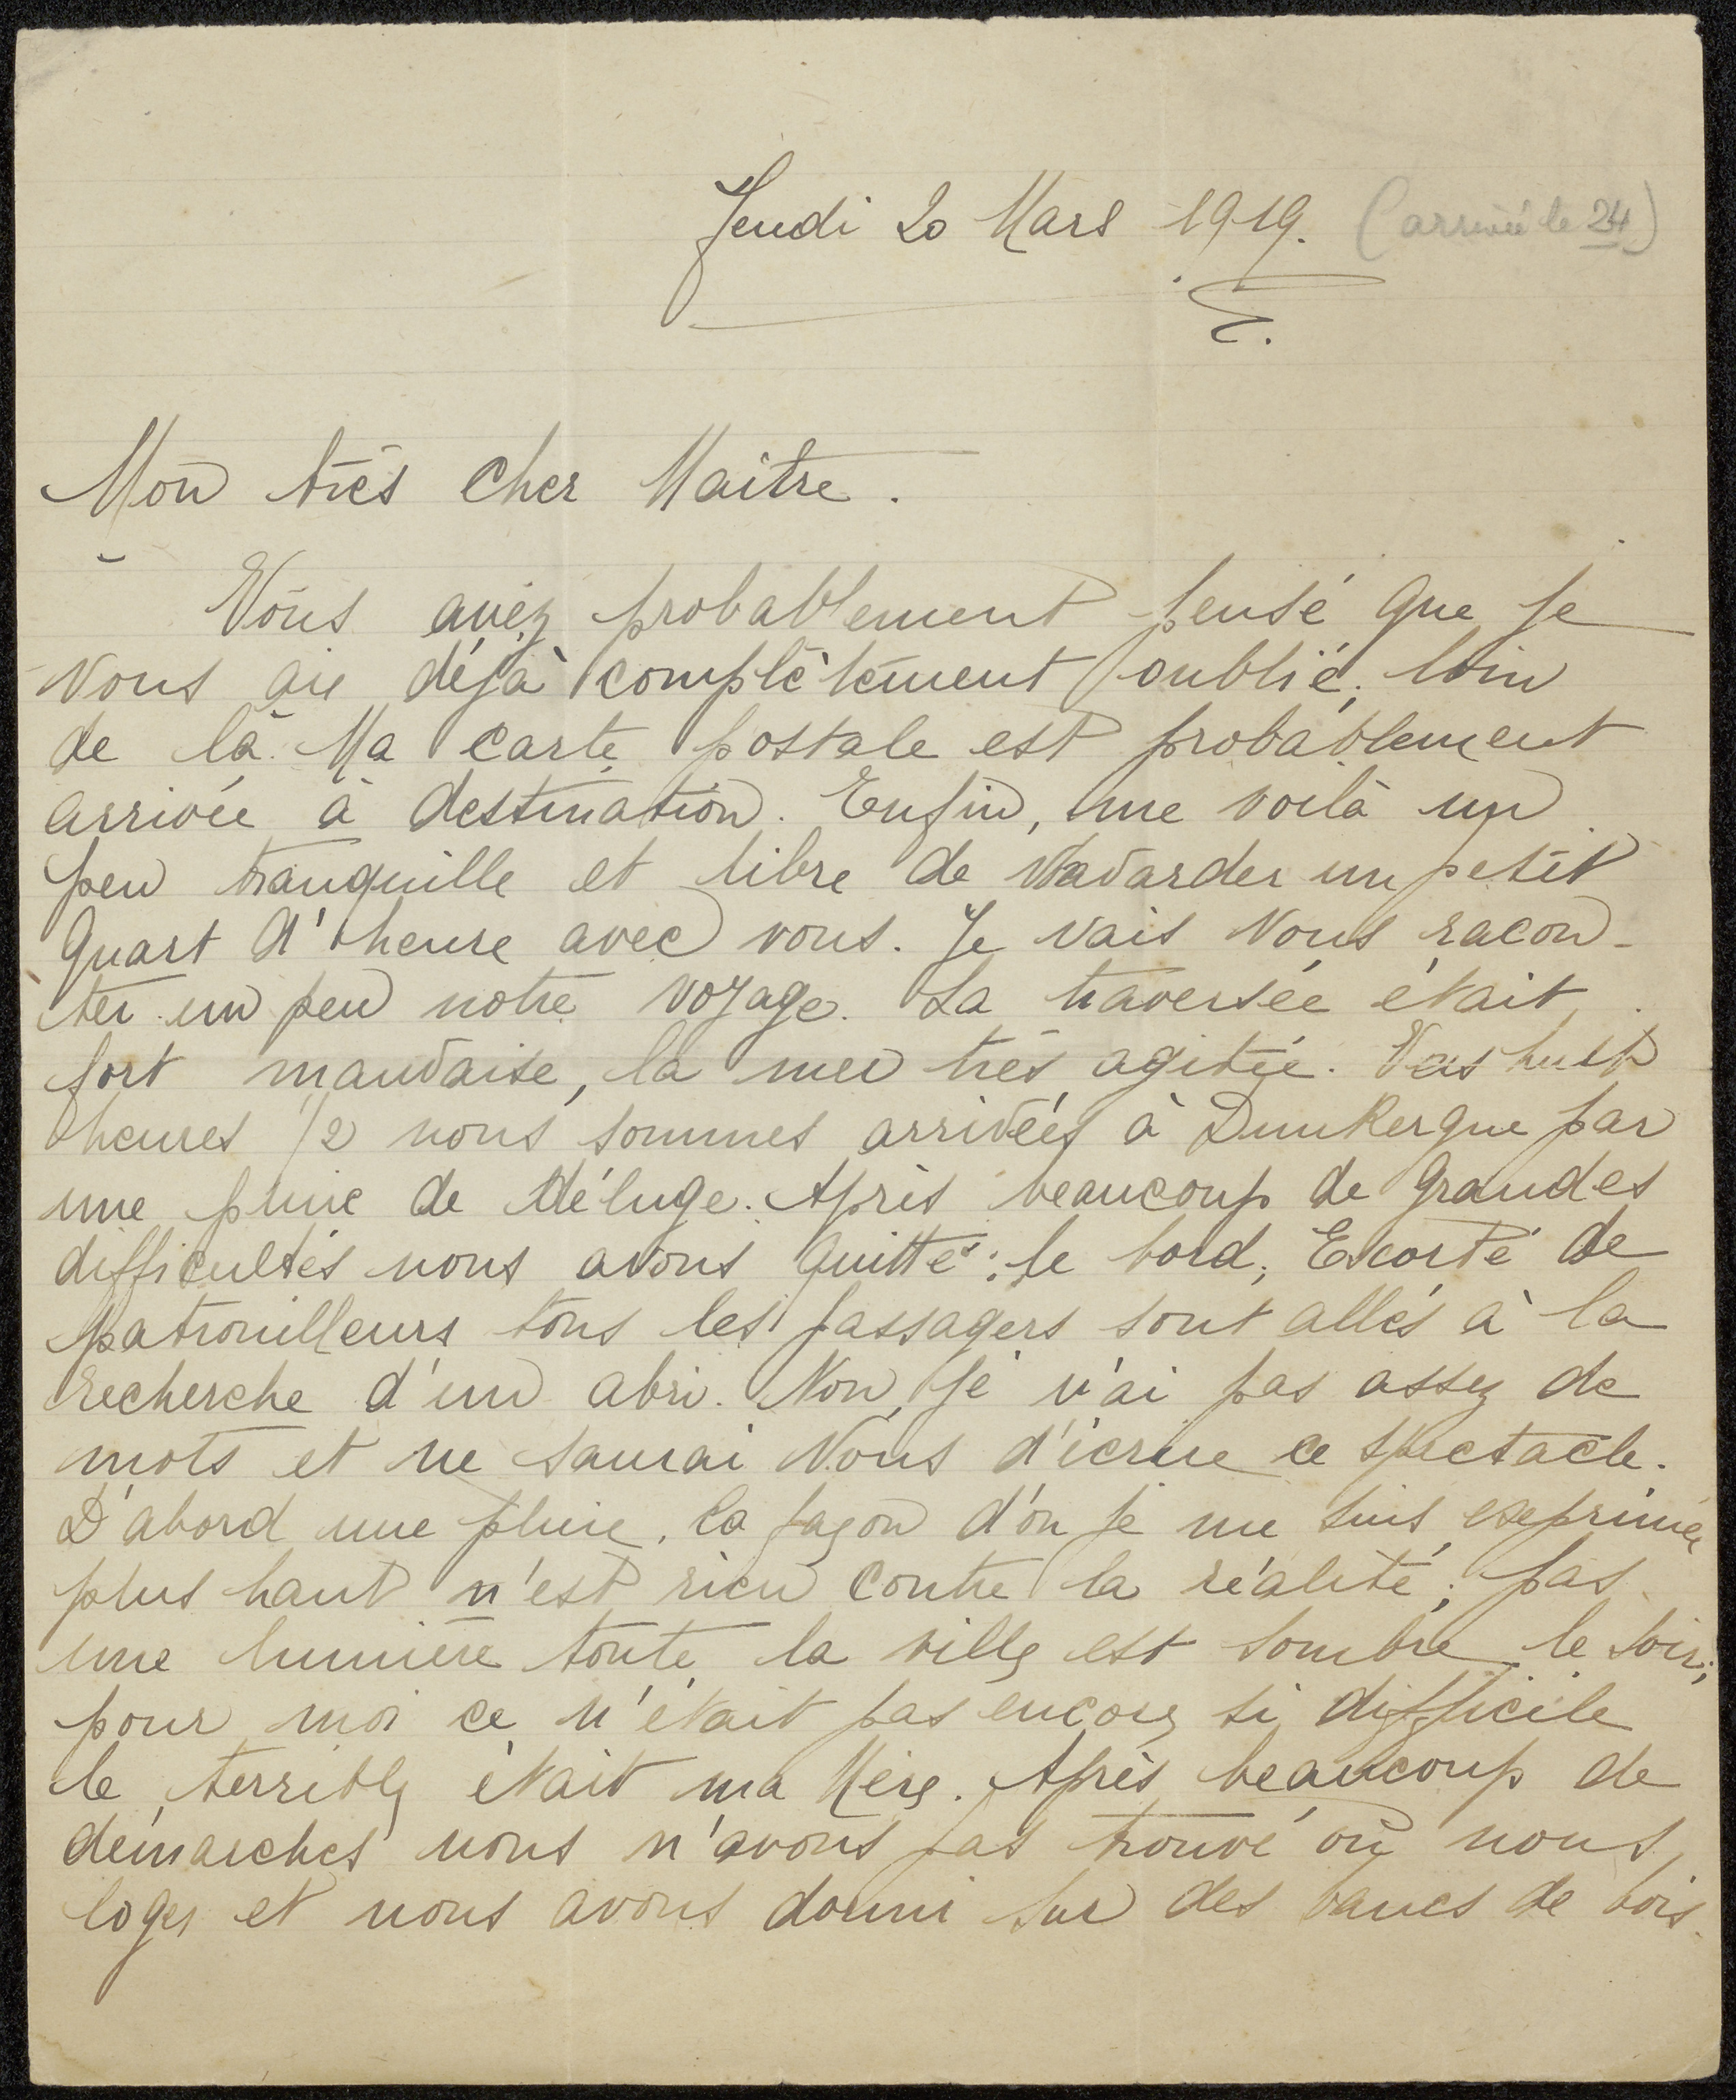 Jeudi 20 Mars 1919. (arrivée le 24)
Mon très cher Maître.
Vous avez probablement pensé que je
vous aie déjà complètement oublié; loin
de là. Ma carte postale est probablement
arrivée à destination. Enfin, me voilà un
peu tranquille et libre de bavarder un petit
quart d'heure avec vous. Je vais vous racon-
ter un peu notre voyage. La traversée était
fort mauvaise, la mer très agitée. Vers huit
heures 1/2 nous sommes arrivées à Dunkerque par
une pluie de déluge. Après beaucoup de grandes
difficultés nous avons quittés le bord; Escorté de
patrouilleurs tous les passagers sont allés à la
recherche d'un abri. Non, je n'ai pas assez de
mots et ne saurai vous d'écrire ce spectacle.
D'abord une pluie, la façon d'on je me suis exprimée
plus haut n'est rien contre la réalité; pas
une lumière toute la ville est sombre le soir;
pour moi ce n'était pas encore si difficile
le terrible était ma Mère. Après beaucoup de
démarches nous n'avons pas trouvé où nous
loger et nous avons dormi sur des bancs de bois.